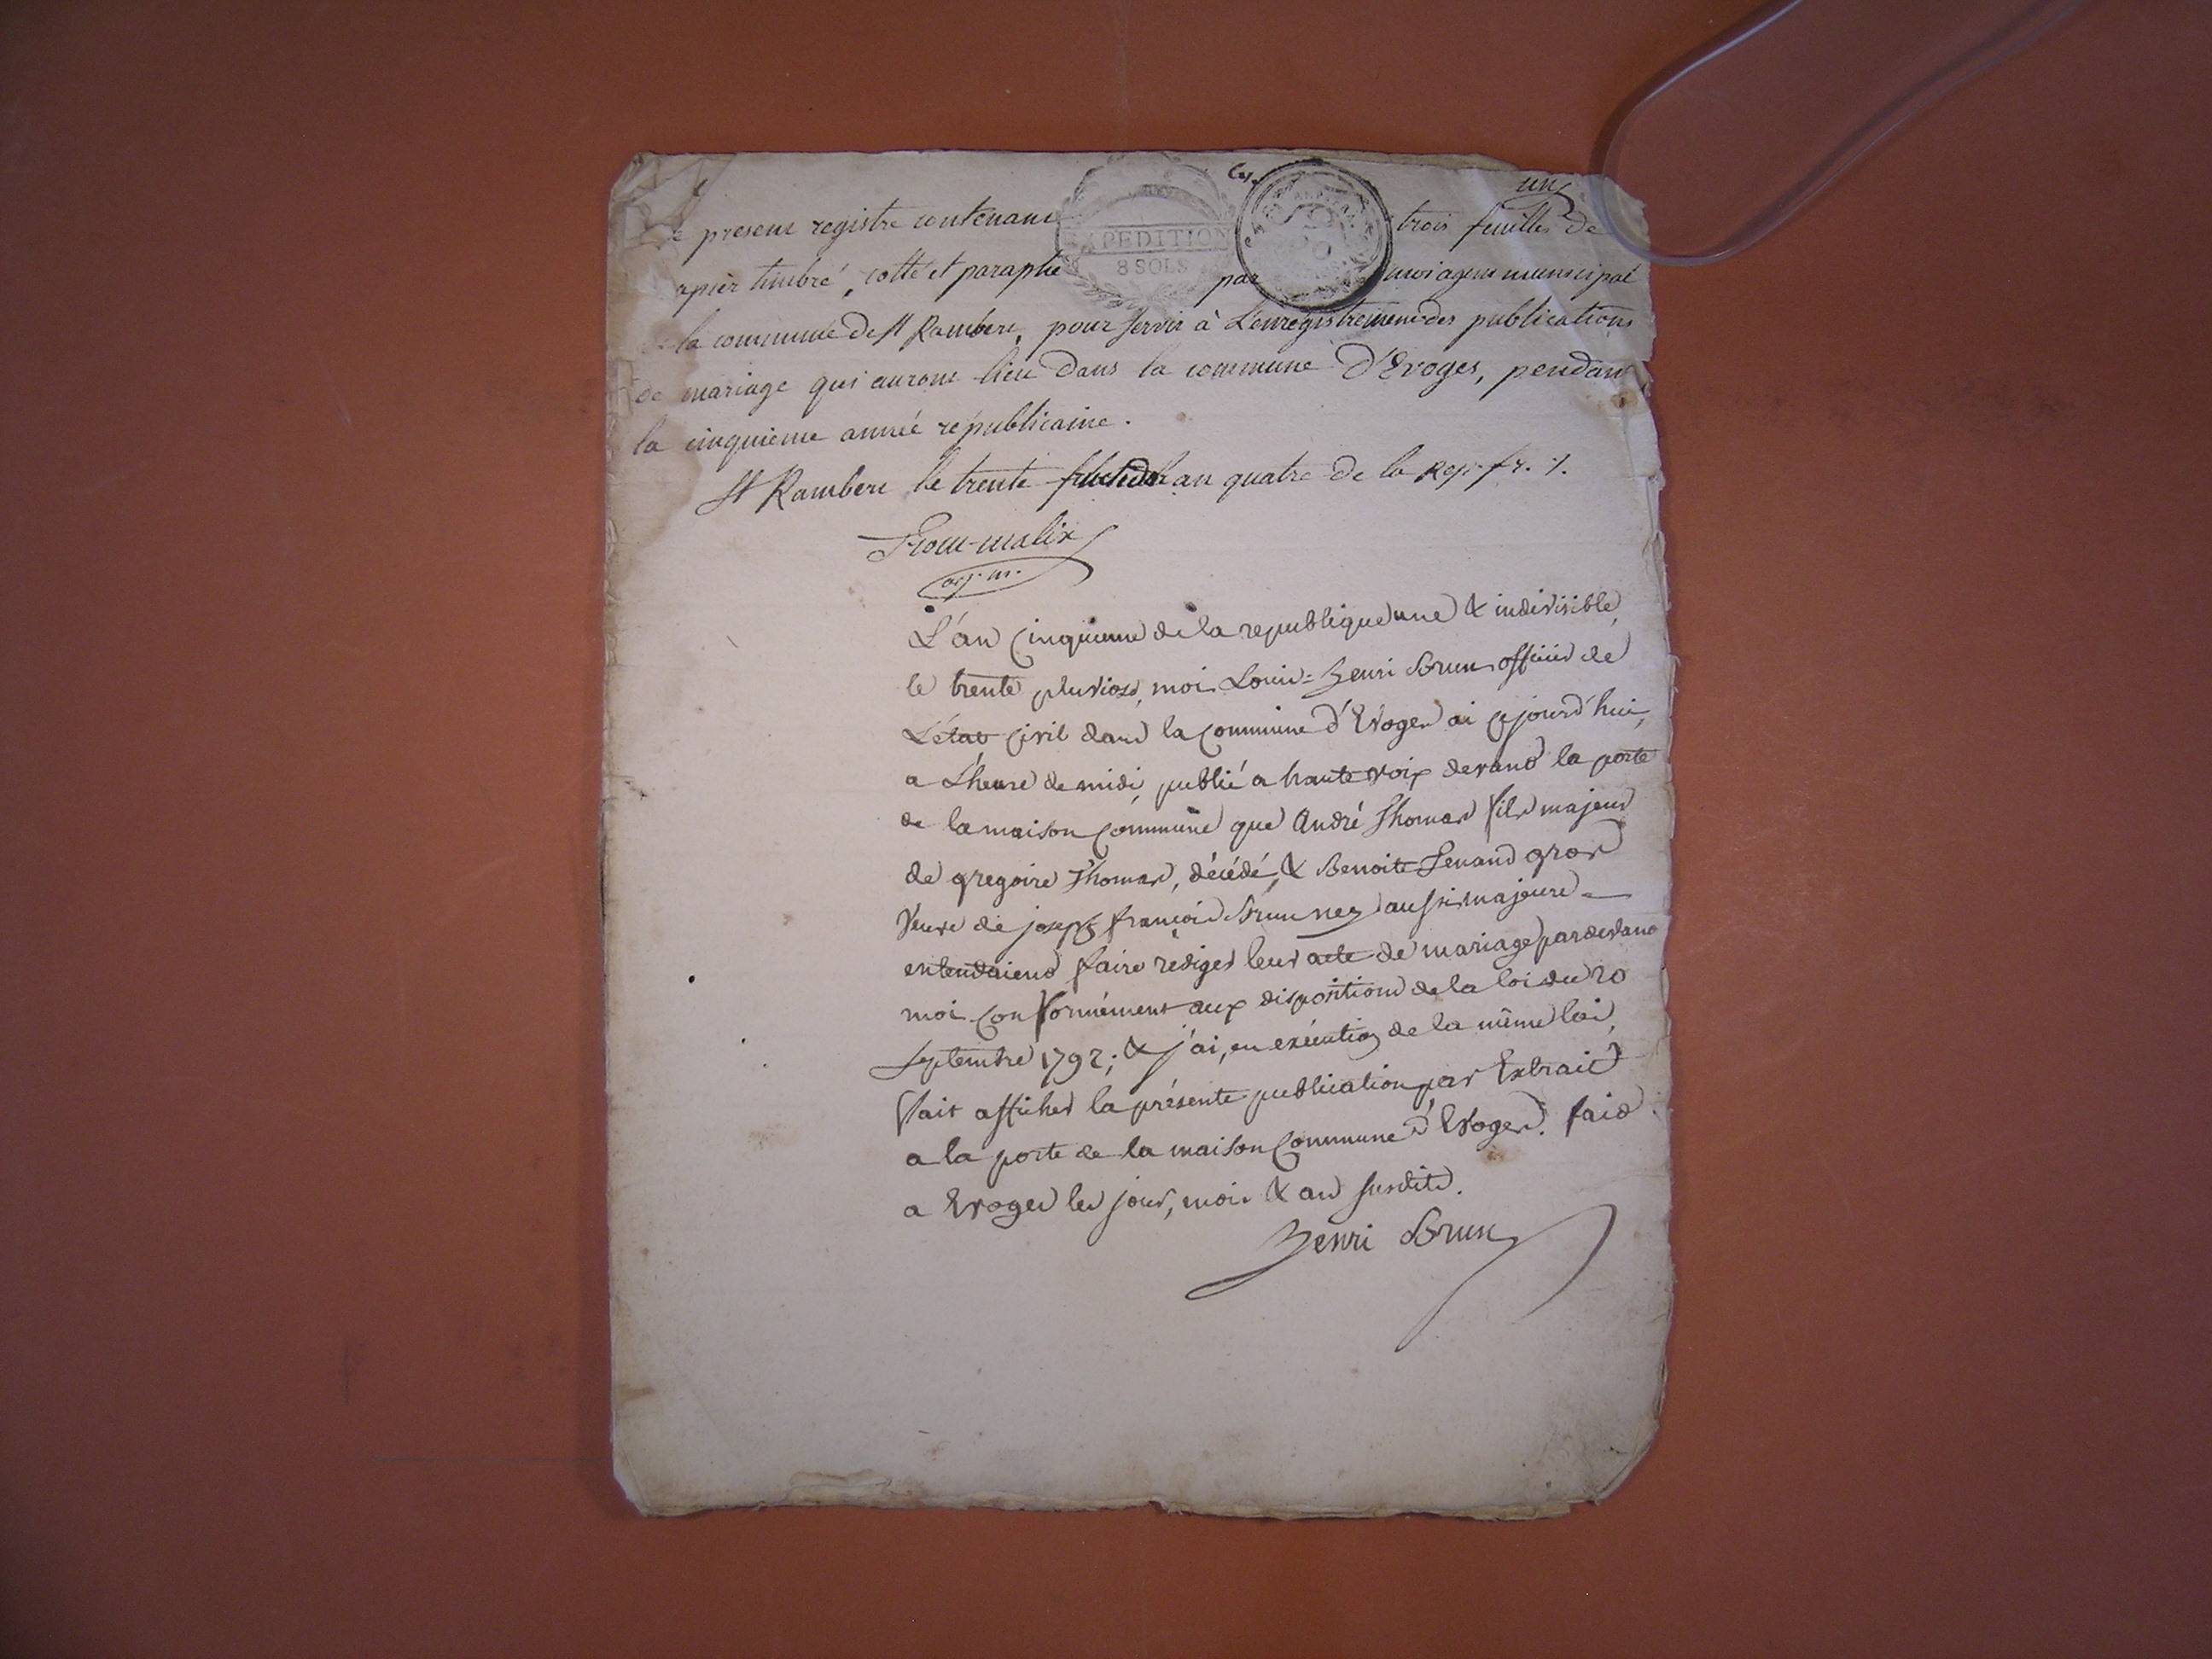 un
Le present registre contenant trois feuilles de
papier timbré, cotté et paraphé par moi agent municipal
de la commune de St Rambert, pour servir à L'enregistrement des publications
de mariage qui auront lieu dans la commune d'Evoges, pendant
la cinquieme année républicaine.
St Rambert le trente fructidor an quatre de la Rep. fr. /.
EXPEDITION
8 SOLS
ag. m.
L'an cinquieme de la republique une & indivisible,
le trente pluviose, moi Louis=Henri Brun officier de
L'état civil dans la commune d'Evoges ai cejourd'hui,
a L'heure de midi, publié a haute voix devant la porte
de la maison commune que André Thomas fils majeur
de gregoire Thomas, décédé, & Benoite gros
veuve de joseph françois Brun aussi majeure
entendaient faire rediger leur acte de mariage pardevant
moi conformément aux dispositions de la loi du 20
Septembre 1792; & j'ai, en exécution de la même loi,
fait afficher la présente publication par Extrait
a la porte de la maison commune d'Evoges. fait
a Evoges les jour, mois & an susdits.
Henri Brun